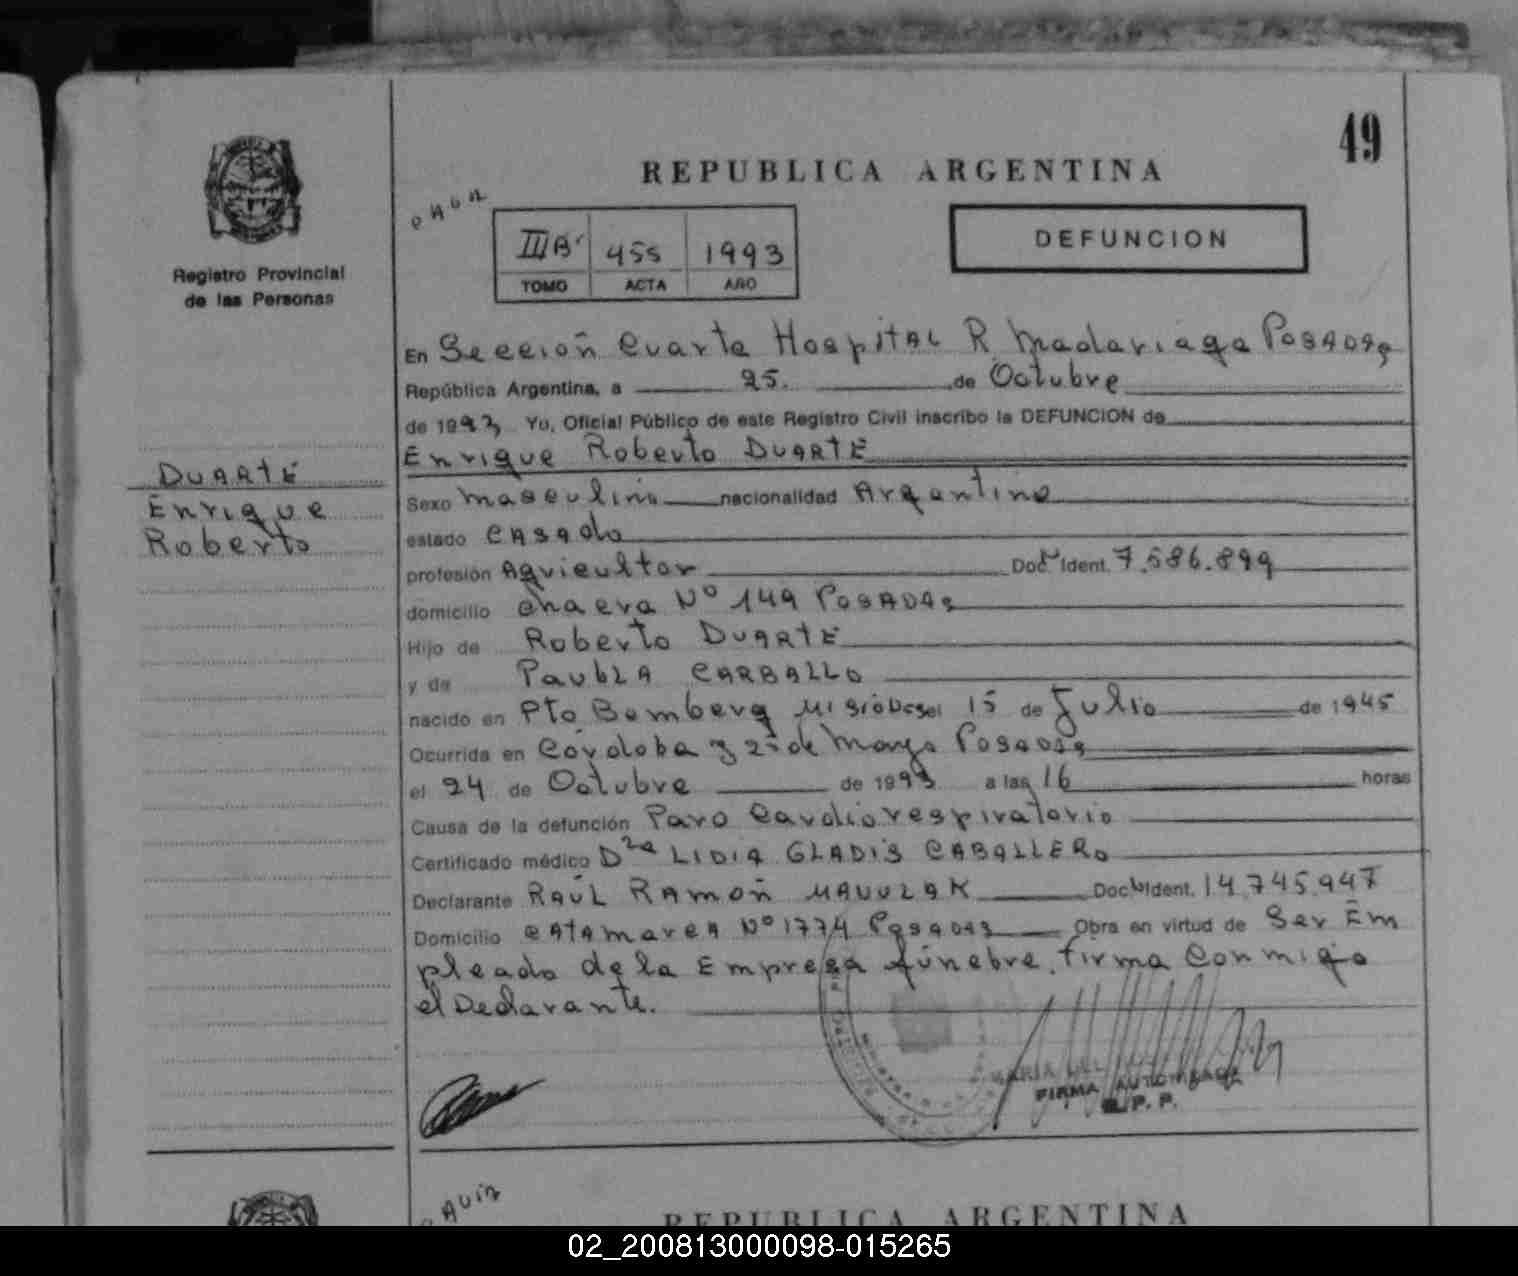 49
REPUBLICA ARGENTINA
IIIB 455 1993
TOMO ACTA AÑO
DEFUNCION
Registro Provincial
de las Personas
DUARTE
Enrique
Roberto
En Sección Cuarta Hospital R. Madariaga Posadas
República Argentina, a 25. de Octubre
de 1993 Yo, Oficial Público de este Registro Civil inscribo la DEFUNCION de
Enrique Roberto DUARTE
Sexo masculino nacionalidad Argentino
estado casado
profesión Agricultor Doc. Ident. 7.586.899
domicilio chacra Nº 149 Posadas
Hijo de Roberto DUARTE
y de Paubla CARBALLO
nacido en Pto Bemberg Misiones el 15 de Julio de 1945
Ocurrida en Córdoba y 25 de Mayo Posadas
el 24 de Octubre de 1993 a las 16 horas
Causa de la defunción Paro Cardiorespiratorio
Certificado médico Dra LIDIA GLADIS CABALLERO
Declarante RAÚL RAMON Doc. Ident. 14.745.947
Domicilio Catamarca Nº 1774 Posadas Obra en virtud de Ser Em
pleado de la Empresa fúnebre. firma Conmigo
el Declarante.
MARIA DEL
FIRMA AUTORIZADA
R. P. P.
REPUBLICA ARGENTINA
02_200813000098-015265